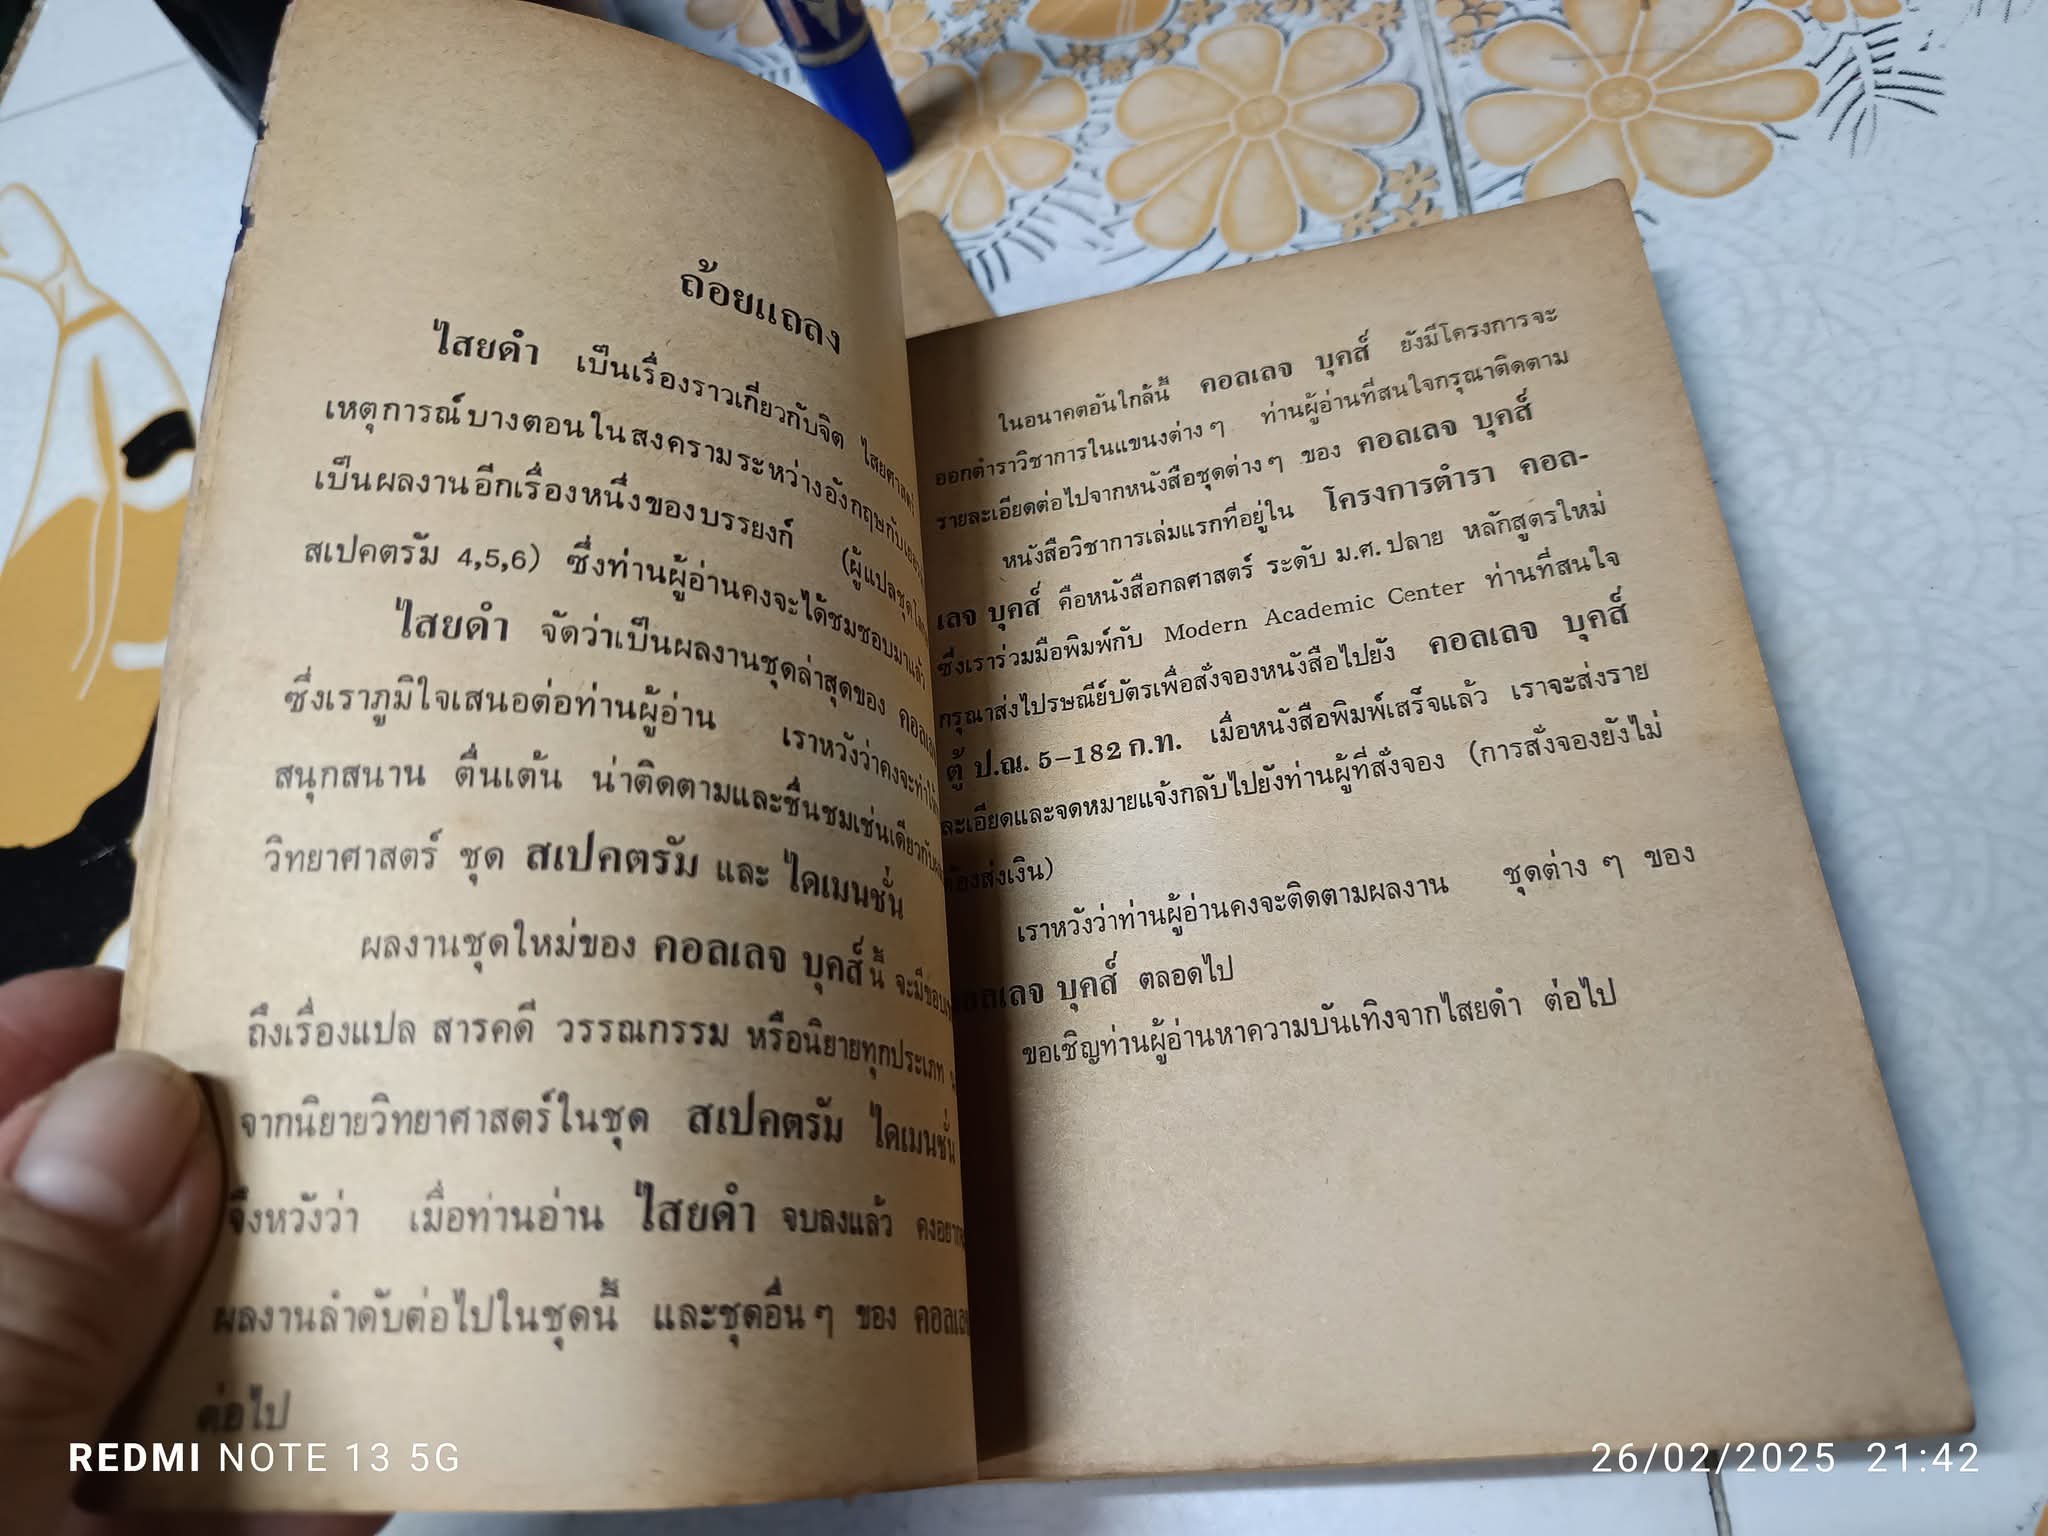 ถ้อยแถลง
ไสยดำ เป็นเรื่องราวเกี่ยวกับจิต ไสยศาสตร์
เหตุการณ์บางตอนในสงครามระหว่างอังกฤษกับเยอรมัน
เป็นผลงานอีกเรื่องหนึ่งของบรรยงก์ (ผู้แปลชุด
สเปคตรัม 4,5,6) ซึ่งท่านผู้อ่านคงจะได้ชมชอบมาแล้ว
ไสยดำ จัดว่าเป็นผลงานชุดล่าสุดของ
ซึ่งเราภูมิใจเสนอต่อท่านผู้อ่าน เราหวังว่าคงจะทำให้
สนุกสนาน ตื่นเต้น น่าติดตามและชื่นชมเช่นเดียวกับ
วิทยาศาสตร์ ชุด สเปคตรัม และ ไดเมนชั่น
ผลงานชุดใหม่ของ คอลเลจ บุคส์นี้ จะมี
ถึงเรื่องแปล สารคดี วรรณกรรม หรือนิยายทุกประเภท
จากนิยายวิทยาศาสตร์ในชุด สเปคตรัม ไดเมนชั่น
จึงหวังว่า เมื่อท่านอ่าน ไสยดำ จบลงแล้ว
ผลงานลำดับต่อไปในชุดนี้ และชุดอื่นๆ ของ
ต่อไป
ในอนาคตอันใกล้นี้ คอลเลจ บุคส์ ยังมีโครงการจะ
ออกตำราวิชาการในแขนงต่างๆ ท่านผู้อ่านที่สนใจกรุณาติดตาม
รายละเอียดต่อไปจากหนังสือชุดต่างๆ ของ คอลเลจ บุคส์
หนังสือวิชาการเล่มแรกที่อยู่ใน โครงการตำรา คอล-
เลจ บุคส์ คือหนังสือกลศาสตร์ ระดับ ม.ศ.ปลาย หลักสูตรใหม่
ซึ่งเราร่วมมือพิมพ์กับ Modern Academic Center ท่านที่สนใจ
กรุณาส่งไปรษณีย์บัตรเพื่อสั่งจองหนังสือไปยัง คอลเลจ บุคส์
ตู้ ป.ณ. 5-182 ก.ท. เมื่อหนังสือพิมพ์เสร็จแล้ว เราจะส่งราย
ละเอียดและจดหมายแจ้งกลับไปยังท่านผู้ที่สั่งจอง (การสั่งจองยังไม่
ต้องส่งเงิน)
เราหวังว่าท่านผู้อ่านคงจะติดตามผลงาน ชุดต่าง ๆ ของ
คอลเลจ บุคส์ ตลอดไป
ขอเชิญท่านผู้อ่านหาความบันเทิงจากไสยดำ ต่อไป
REDMI NOTE 13 5G
26/02/2025 21:42